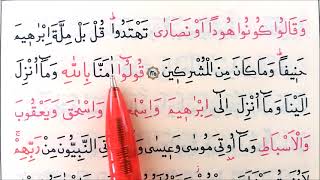 وَقَالُوا كُونُوا هُودًا اَوْ نَصَارٰى تَهْتَدُواؕ قُلْ بَلْ مِلَّةَ اِبْرٰهٖيمَ
حَنٖيفًاؕ وَمَا كَانَ مِنَ الْمُشْرِكٖينَ ﴿١٣٥﴾ قُولُٓوا اٰمَنَّا بِاللّٰهِ وَمَٓا اُنْزِلَ
اِلَيْنَا وَمَٓا اُنْزِلَ اِلٰٓى اِبْرٰهٖيمَ وَاِسْمٰعٖيلَ وَاِسْحٰقَ وَيَعْقُوبَ
وَالْاَسْبَاطِ وَمَٓا اُو۫تِيَ مُوسٰى وَعٖيسٰى وَمَٓا اُو۫تِيَ النَّبِيُّونَ مِنْ رَبِّهِمْۚ